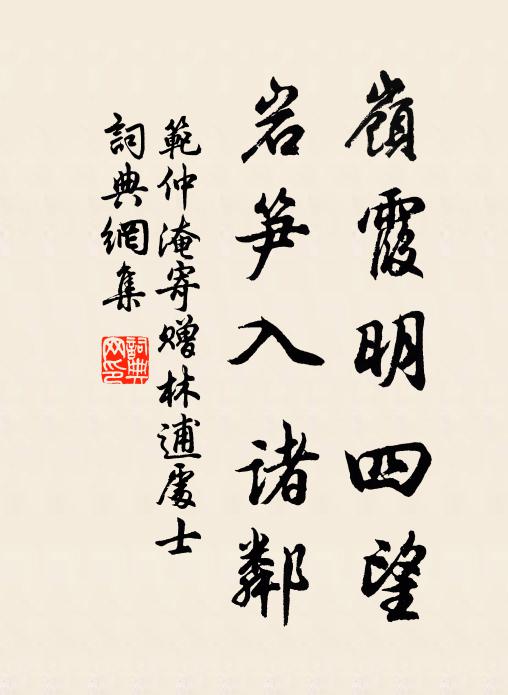 嶺霞明四望
岩笋入諸鄰
範仲淹寄贈林逋處士
詞典網集
詞典
网印